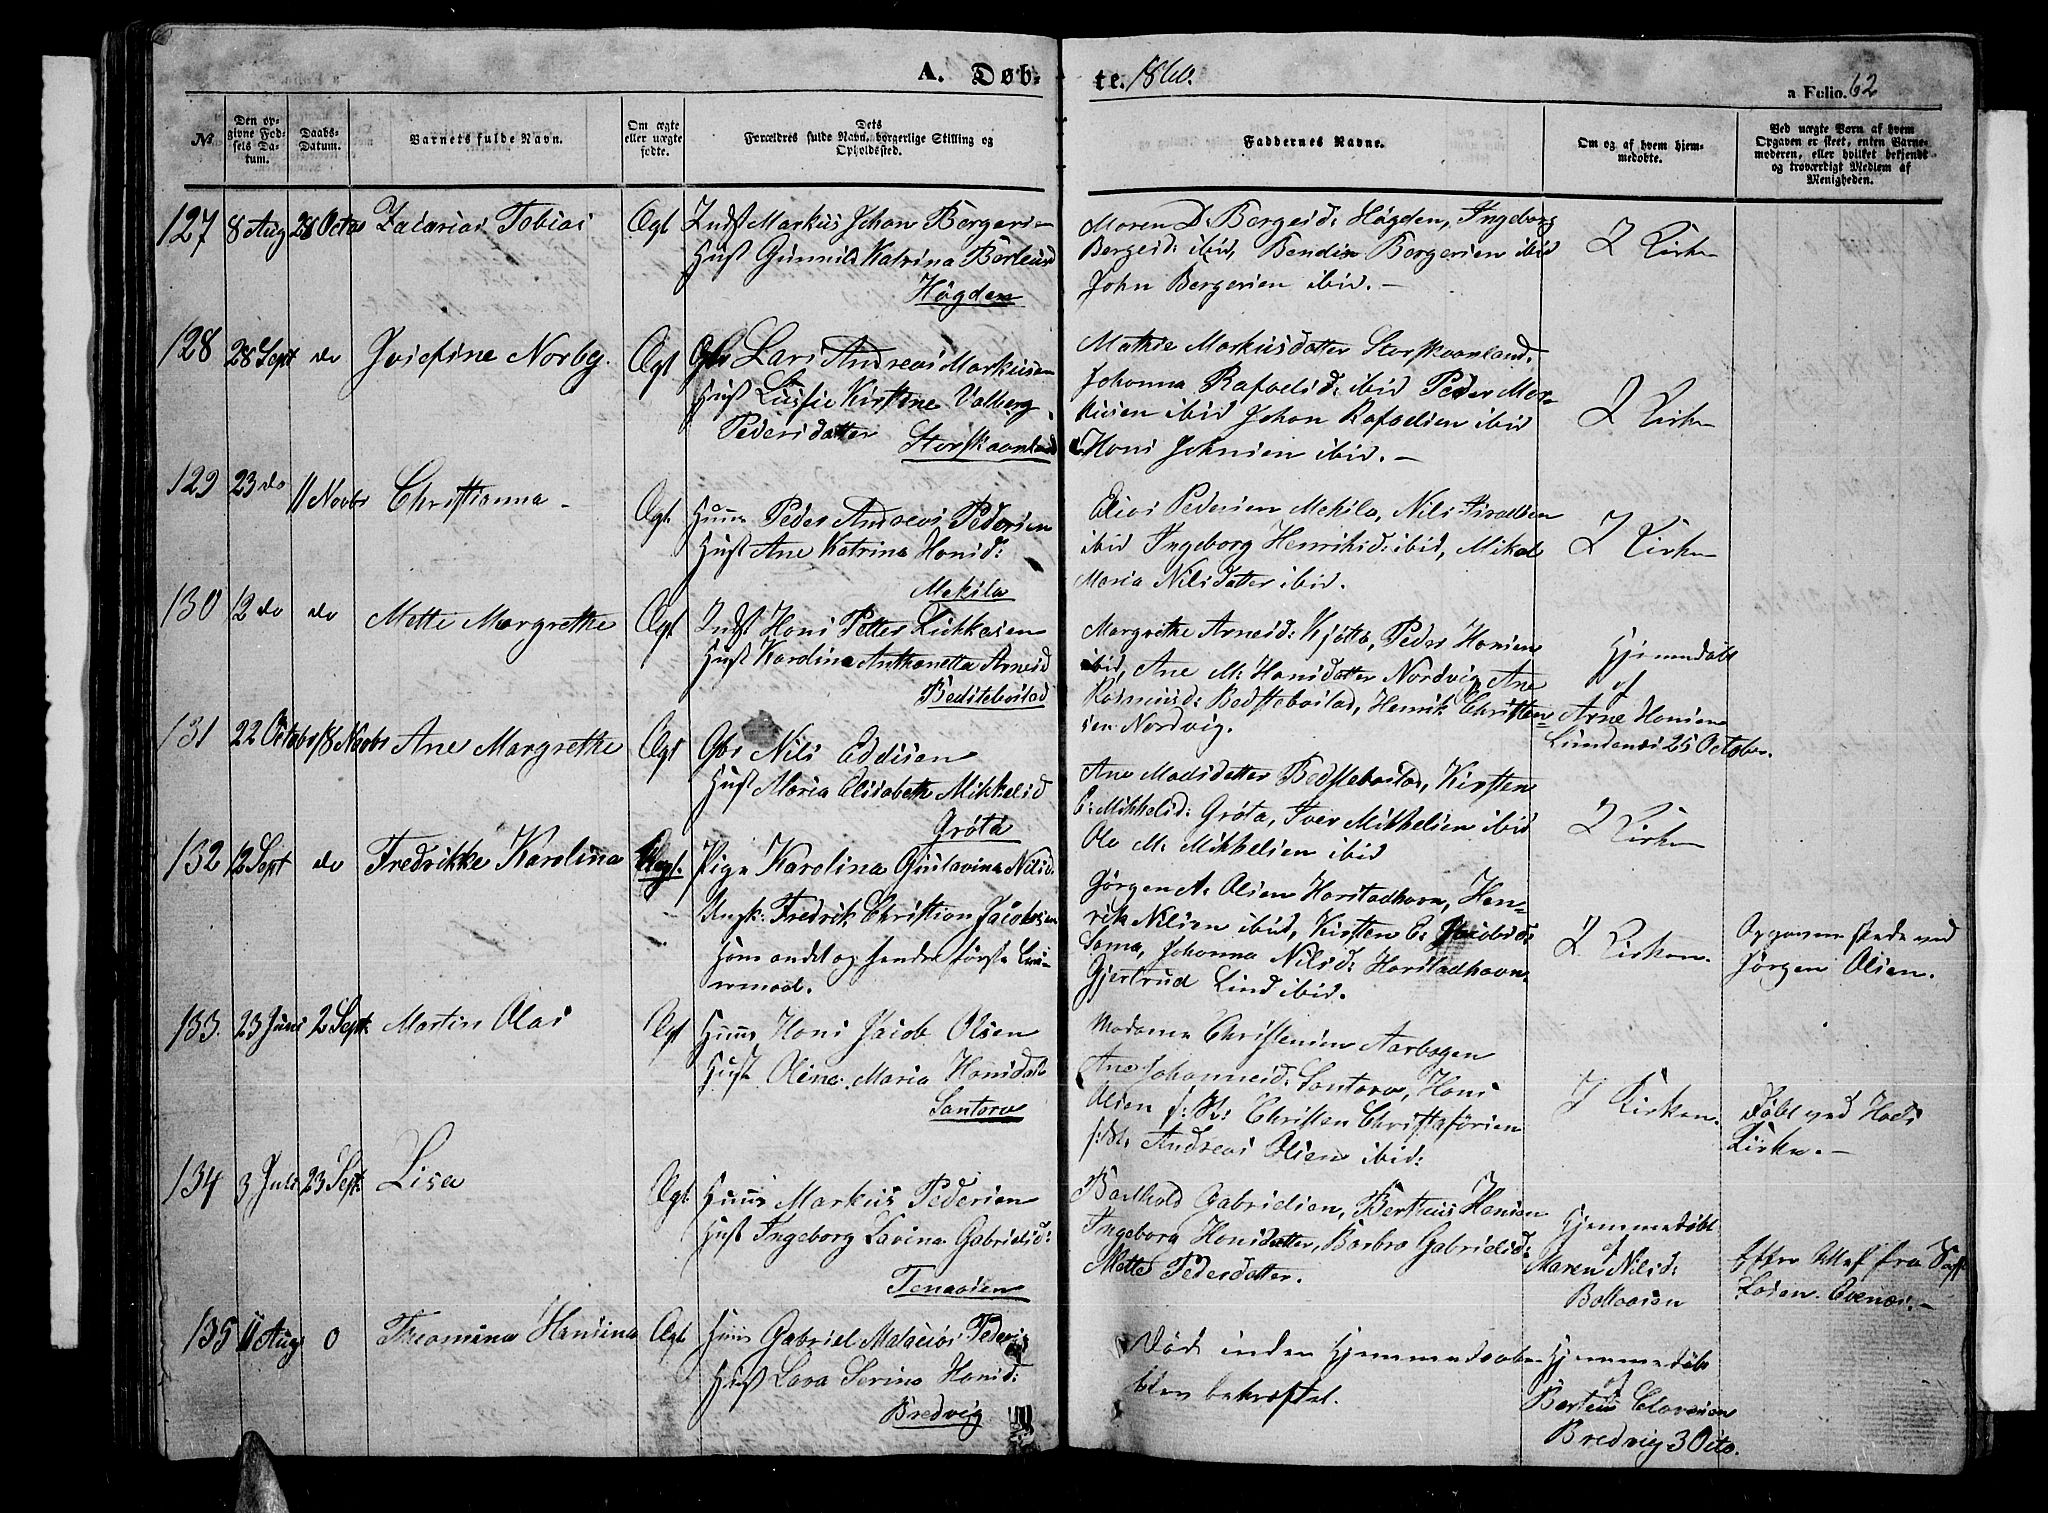 A. Døb-
te. 1860.
a Folio. 62
№
Den op-
givne Fød-
sels Da-
tum.
Daabs-
Datum.
Barnets fulde Navn.
Om ægte
eller uægte
fødte.
Dets
Forældres fulde Navn, borgerlige Stilling og
Opholdssted.
Faddernes Navne.
Om og af hvem hjem-
medøbte.
Ved uægte Børn af hvem
Opgaven er skeet, enten Barne-
moderen, eller hvilket bekjendt
og troværdigt Medlem af
Menigheden.
127 8 Aug 28 Octbr Zacarias Tobias Ægt Indst Markus Johan Bergersen
Hust Gunnild Katrina
Høgden
Maren D. Bergersd: Høgden, Ingeborg
Bergersd: ibid, Bendix Bergersen ibid
John Bergersen ibid. –
I Kirken
128 28 Sept do Josefine Norbg. Ægt Gbr Lars Andreas Markusen
Hust Lussie Kirstine Valberg
Pedersdatter Storskaanland
Mathie Markusdatter Storskaanland.
Johanna Rafaelsd: ibid Peder Mar-
kusen ibid Johan Rafaelsen ibid
Hans Johnsen ibid. –
I Kirken
129 23 do 11 Novbr Christianna – Ægt Huus Peder Andreas Pedersen
Hust Ane Katrina Hansd:
Mekila
Elias Pedersen Mekila, Nils Israelsen
ibid Ingeborg Henriksd: ibid, Mikal
Maria Nilsdatter ibid.
I Kirken
130 12 do do Mette Margrethe Ægt Indst Hans Petter Lukkasen
Hust Karolina Anthonetta Arnesd
Bedstebostad
Margrethe Arnesd: Kjøtta, Peder Hansen
ibid, Ane M: Hansdatter Nordvig, Ane
Rasmusd: Bedstebostad, Henrik Christen-
sen Nordvig.
Hjemmedøbt
af
Arne Hansen
Lundenes 25 October.
131 22 October 18 Novbr Ane Margrethe Ægt Gbr Nils Eddisen
Hust Maria Elisabeth Mikkelsd
Grøta
Ane Madsdatter Bedstebostad, Kirsten
E: Mikkelsd: Grøta, Iver Mikkelsen ibid
Ole M: Mikkelsen ibid
I Kirken
132 12 Sept do Fredrikke Karolina Uægt. Pige Karolina Gustavina Nilsd:
Ungk: Fredrik Christian Jacobsen
Hans andet og hendes første Lei-
ermaal.
Jørgen A: Olsen Harstadhavn, Hen-
rik Nilsen ibid, Kirsten E: Jacobsd:
Sama, Johanna Nilsd: Harstadhavn
Gjertrud Lind ibid.
I Kirken.
Opgaven skede ved
Jørgen Olsen.
133. 23 Juni 2 Sept. Martin Olai Ægt Huus Hans Jacob Olsen
Hust Olina Maria Hansdat
Santorv
Madame Christensen Aarbogen
Ane Johannesd: Santorv, Hans
Olsen Christen Christoførsen
Andreas Olsen ibid:
I Kirken.
Døbt ved Hols
Kirke. –
134 3 Juli 23 Sept. Lisa Ægt Huus Markus Pedersen
Hust Ingeborg Lavina Gabrielsd:
Tenaasen
Barthold Gabrielsen, Bertheus Hansen
Ingeborg Hansdatter, Barbro Gabrielsd:
Mette Pedersdatter.
Hjemmedøbt
af
Maren Nilsd:
Boltaasen
Efter Attest fra
Evenæs. –
135 11 Aug 0 Theamina Hansina Ægt Huus Gabriel Malacias Peders
Hust Lava Serina Hansd:
Bredvig
Død inden Hjemmedaaben
blev bekræftet.
Hjemmedøbt
af
Berteus Clavesen
Bredvig 3 Octo.